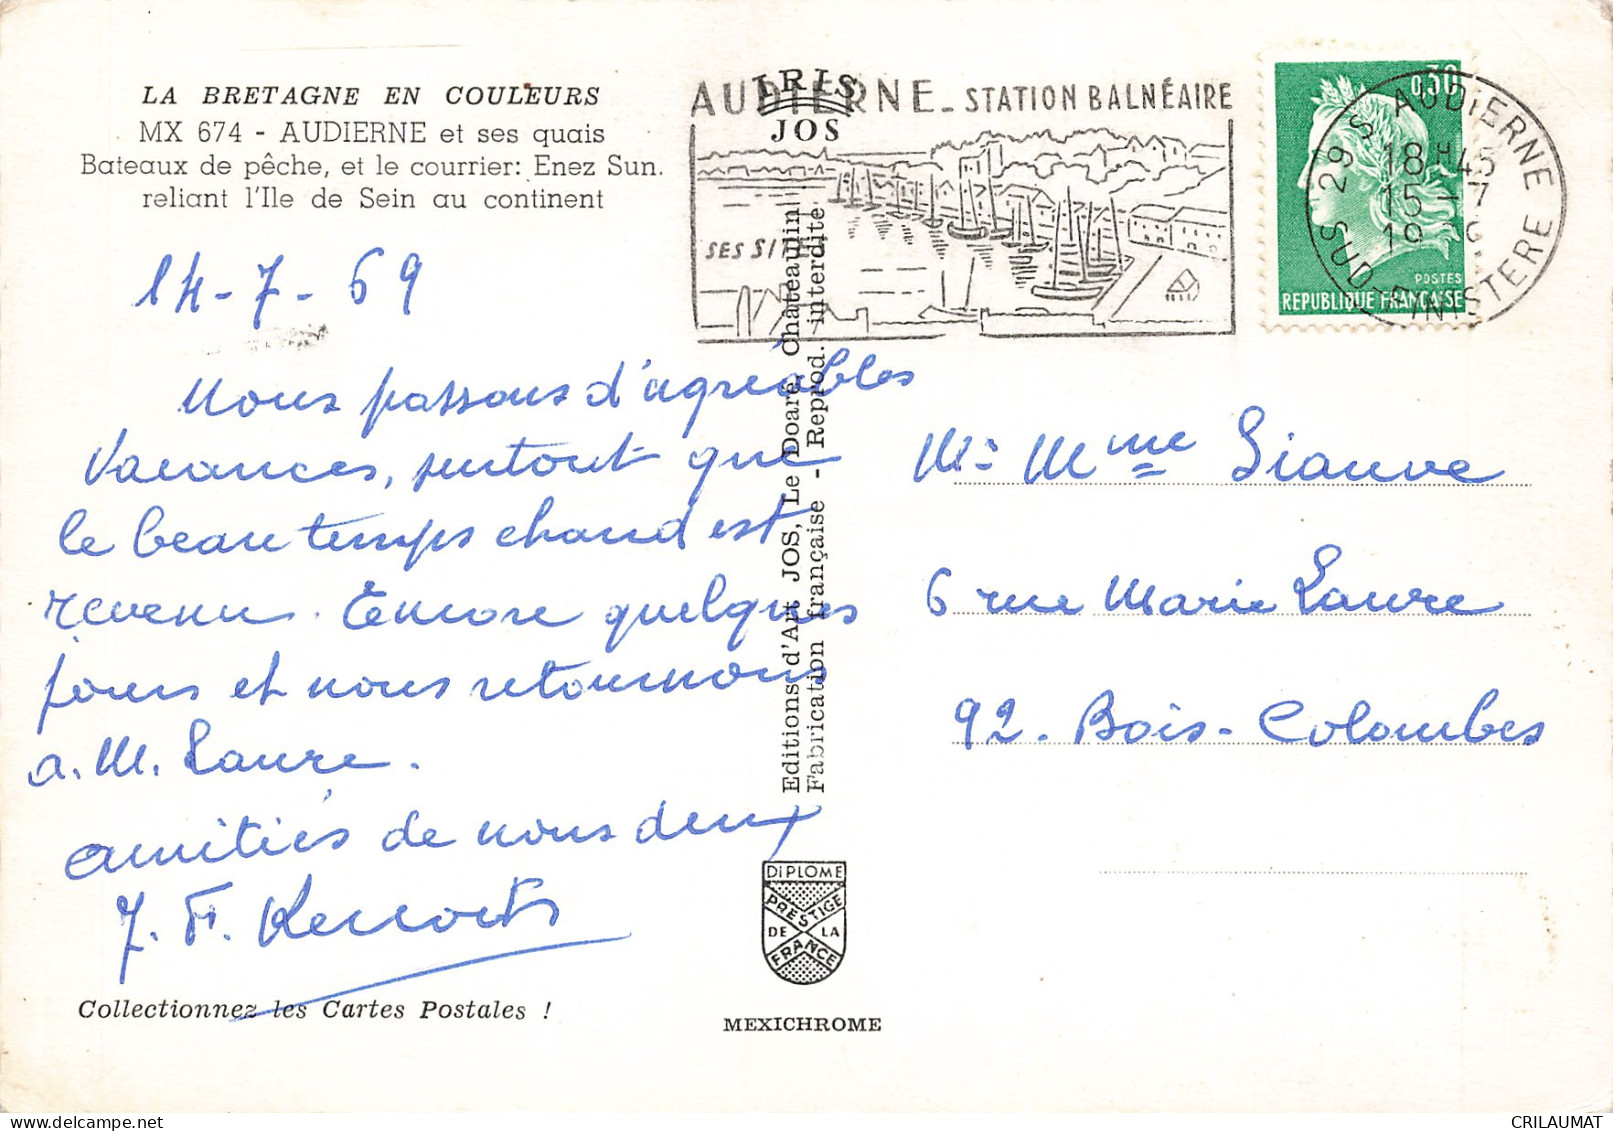 LA BRETAGNE EN COULEURS
MX 674 - AUDIERNE et ses quais
Bateaux de pêche, et le courrier: Enez Sun.
reliant l'Ile de Sein au continent
14-7-69
Nous passons d'agréables
vacances, surtout que
le beau temps chaud est
revenu. Encore quelques
jours et nous retournons
a. M. Laure.
amitiés de nous deux
J. F.
Collectionnez les Cartes Postales !
IRIS
JOS
Editions d'Art JOS, Le Doaré, Chateaulin
Fabrication française - Reprod. interdite
DIPLOME
PRESTIGE
DE LA
FRANCE
MEXICHROME
AUDIERNE - STATION BALNÉAIRE
SES SITES
0,30
POSTES
REPUBLIQUE FRANÇAISE
29 S AUDIERNE
18 H 45
15 - 7
19
SUD-FINISTERE
Mr Mme Siauve
6 rue Marie Laure
92. Bois-Colombes
CRILAUMAT